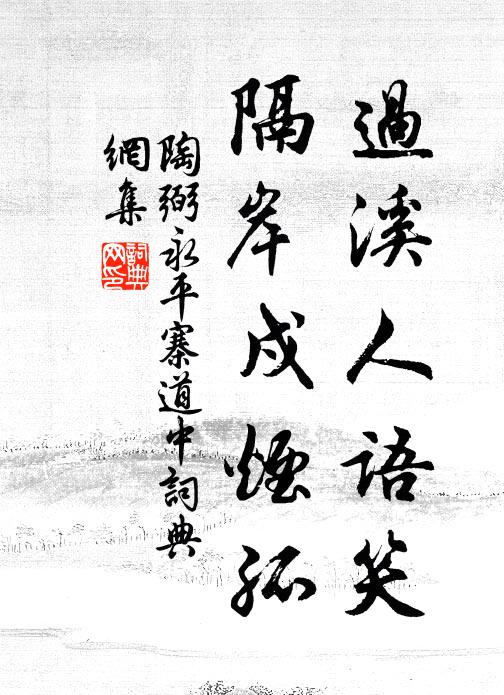 過溪人語笑
隔岸戍煙孤
陶弼永平寨道中詞典
網集
詞典
网印